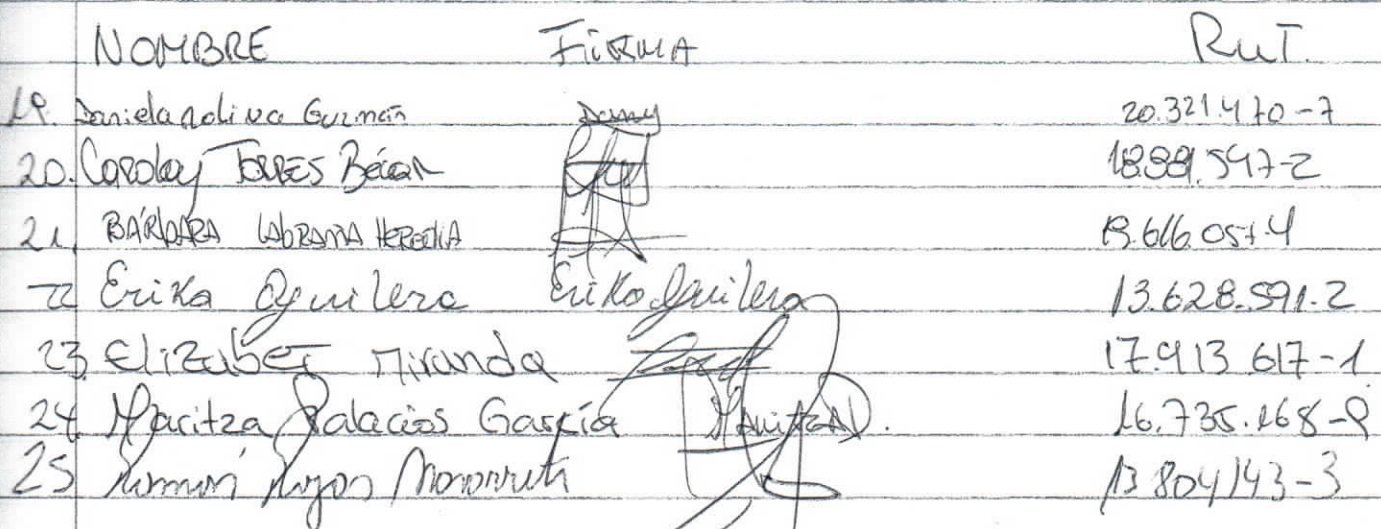 NOMBRE FIRMA RUT.
19. Daniela Oliva Guzmán Dany 20.321.470-7
20. Caroley TORRES Bécar 18.881.547-2
21. BÁRBARA LABRAÑA HEREDIA 19.616.057-4
22 Erika Aguilera Erika Aguilera 13.628.591-2
23 Elizabet Miranda 17.913.617-1
24 Maritza Palacios García MaritzaP. 16.735.168-9
25 Román Rojas 13.804.143-3